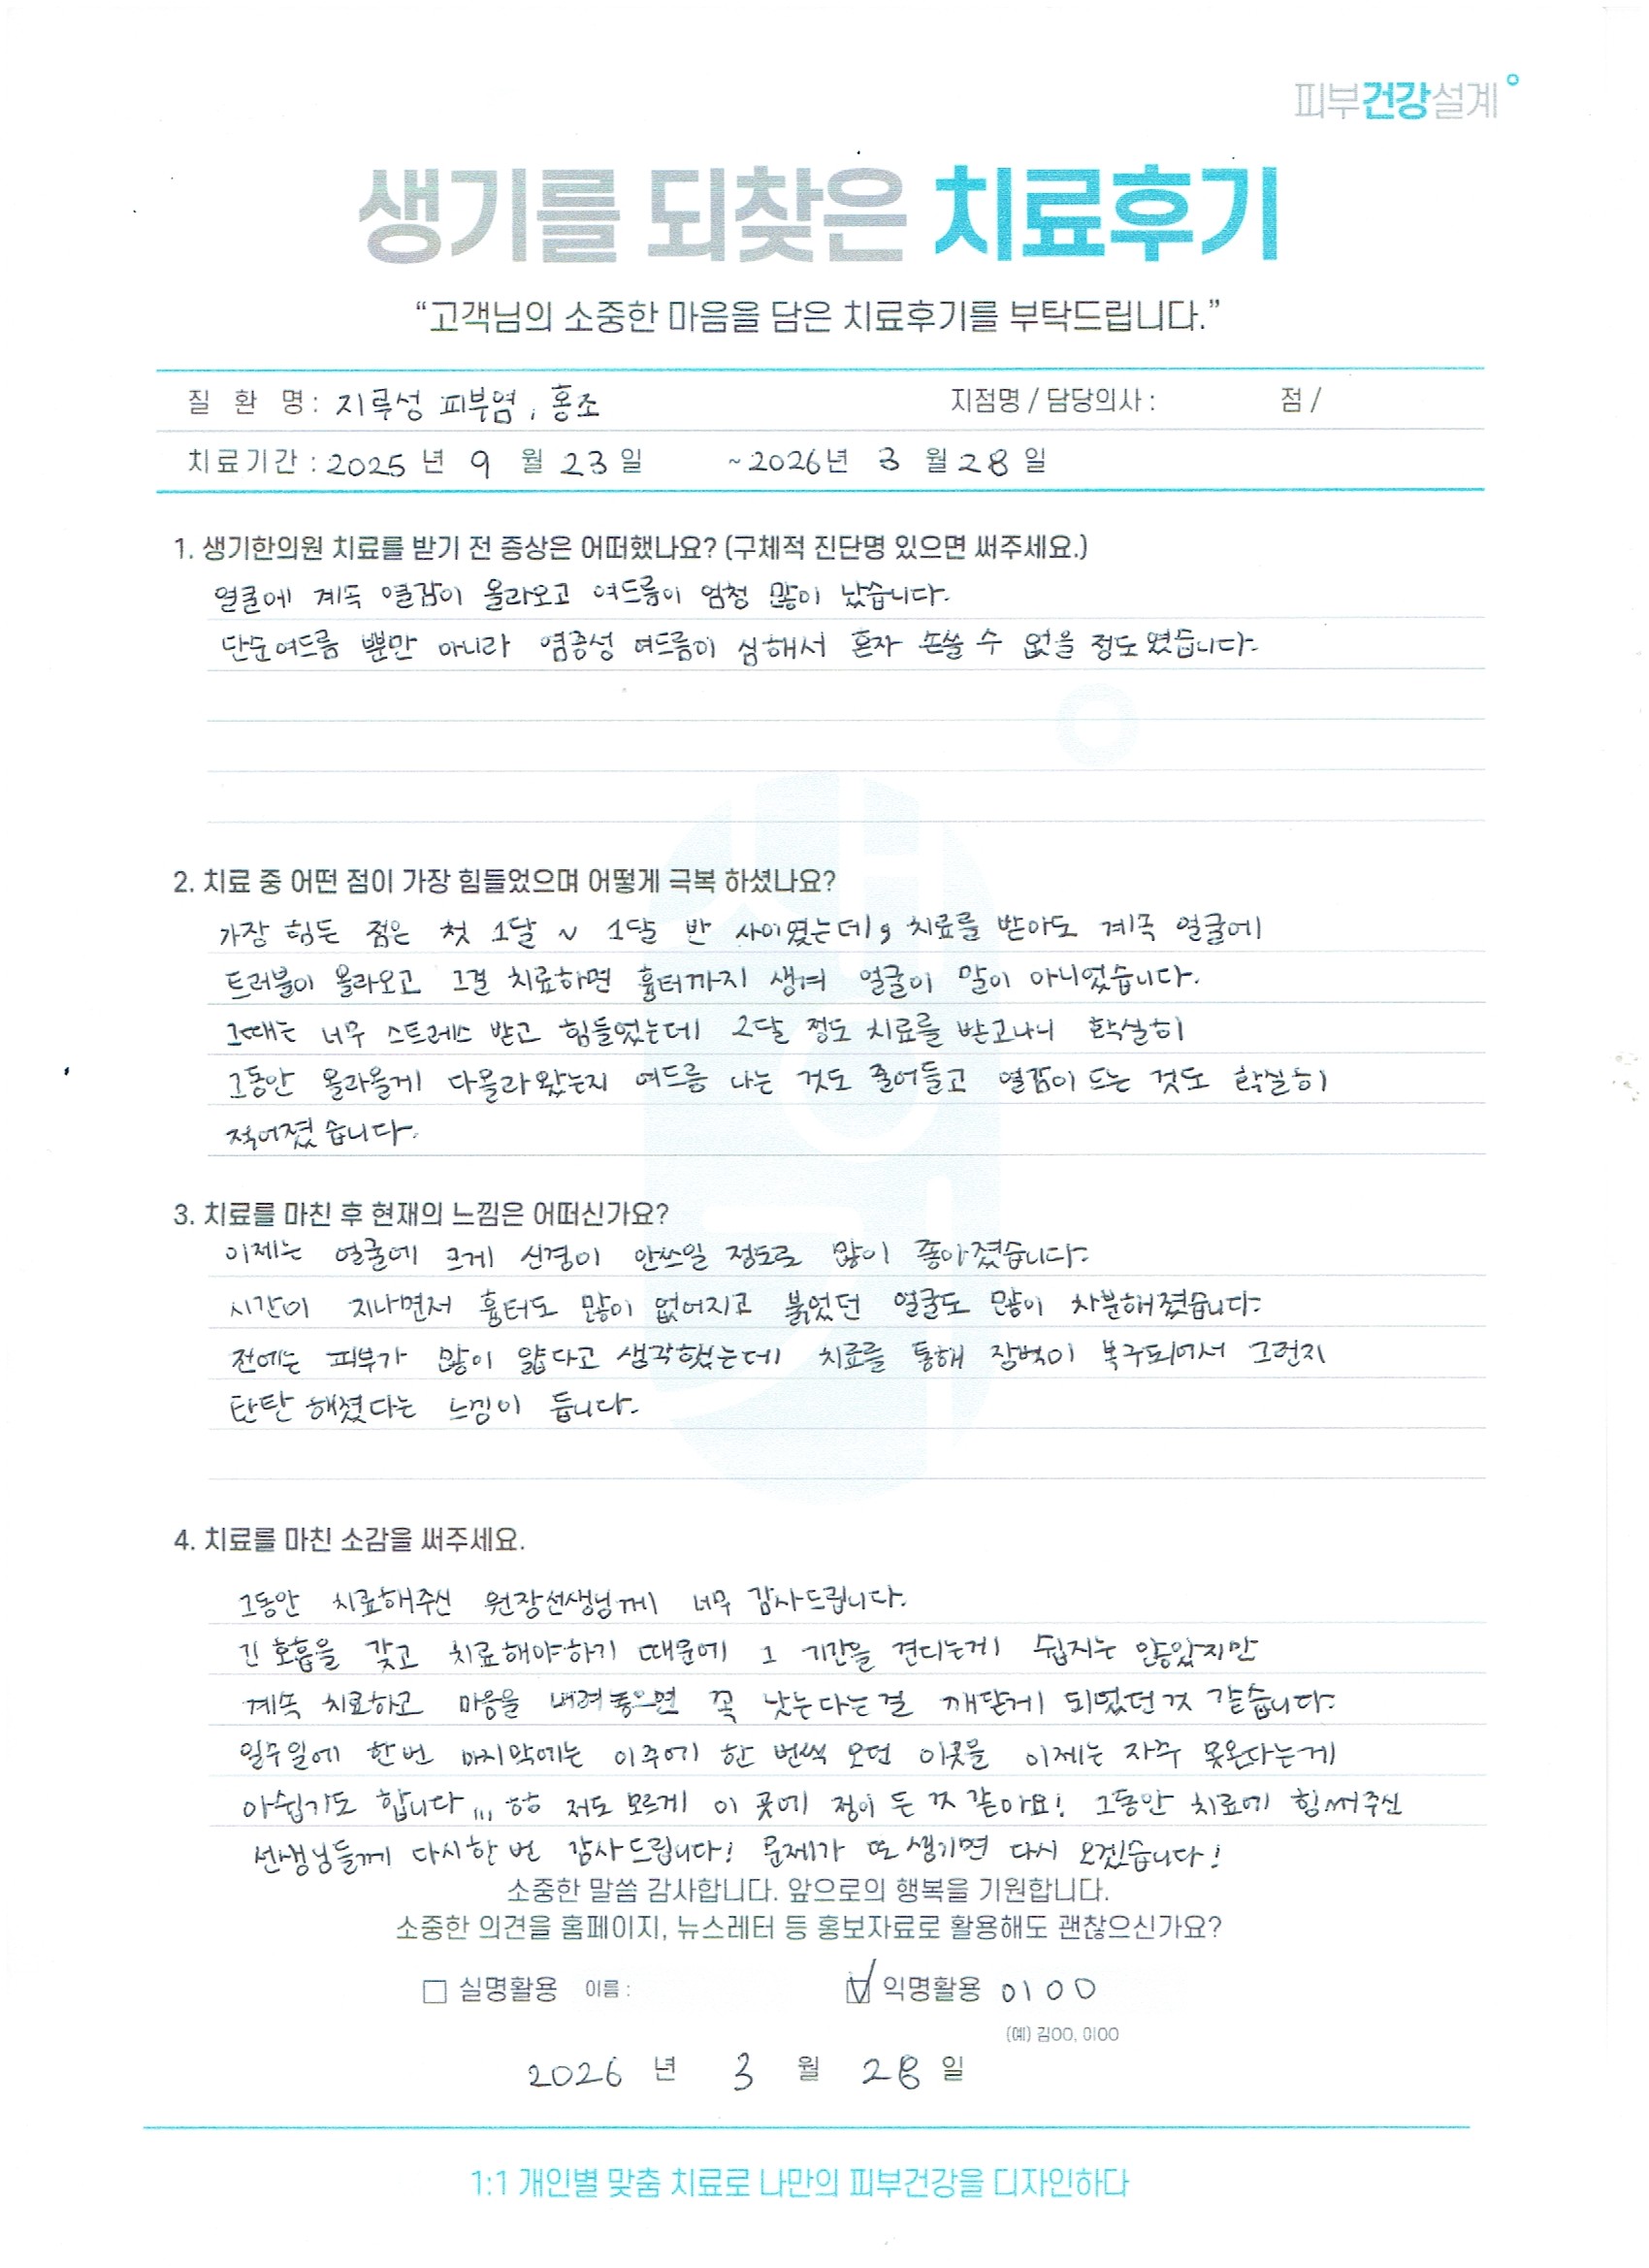 피부건강설계
생기를 되찾은 치료후기
“고객님의 소중한 마음을 담은 치료후기를 부탁드립니다.”
질 환 명 : 지루성 피부염, 홍조 지점명 / 담당의사 : 점 /
치료기간 : 2025 년 9 월 23 일 ~ 2026 년 3 월 28 일
1. 생기한의원 치료를 받기 전 증상은 어떠했나요? (구체적 진단명 있으면 써주세요.)
얼굴에 계속 열감이 올라오고 여드름이 엄청 많이 났습니다.
단순여드름 뿐만 아니라 염증성 여드름이 심해서 혼자 손쓸 수 없을 정도였습니다.
2. 치료 중 어떤 점이 가장 힘들었으며 어떻게 극복 하셨나요?
가장 힘든 점은 첫 1달 ~ 1달 반 사이였는데, 치료를 받아도 계속 얼굴에
트러블이 올라오고 그걸 치료하면 흉터까지 생겨 얼굴이 말이 아니었습니다.
그때는 너무 스트레스 받고 힘들었는데 2달 정도 치료를 받고나니 확실히
그동안 올라올게 다올라왔는지 여드름 나는 것도 줄어들고 열감이 드는 것도 확실히
적어졌습니다.
3. 치료를 마친 후 현재의 느낌은 어떠신가요?
이제는 얼굴에 크게 신경이 안쓰일 정도로 많이 좋아졌습니다.
시간이 지나면서 흉터도 많이 없어지고 붉었던 얼굴도 많이 차분해졌습니다.
전에는 피부가 많이 얇다고 생각했는데 치료를 통해 장벽이 복구되어서 그런지
탄탄해졌다는 느낌이 듭니다.
4. 치료를 마친 소감을 써주세요.
그동안 치료해주신 원장선생님께 너무 감사드립니다.
긴 호흡을 갖고 치료해야하기 때문에 그 기간을 견디는게 쉽지는 않았지만
계속 치료하고 마음을 내려놓으면 꼭 낫는다는 걸 깨닫게 되었던 것 같습니다.
일주일에 한번 마지막에는 이주에 한 번씩 오던 이곳을 이제는 자주 못온다는게
아쉽기도 합니다... ㅎㅎ 저도 모르게 이 곳에 정이 든 것 같아요! 그동안 치료에 힘써주신
선생님들께 다시한 번 감사드립니다! 문제가 또 생기면 다시 오겠습니다!
소중한 말씀 감사합니다. 앞으로의 행복을 기원합니다.
소중한 의견을 홈페이지, 뉴스레터 등 홍보자료로 활용해도 괜찮으신가요?
□ 실명활용 이름 : ☑ 익명활용 이OO
(예) 김OO, 이OO
2026 년 3 월 28 일
1:1 개인별 맞춤 치료로 나만의 피부건강을 디자인하다
생기